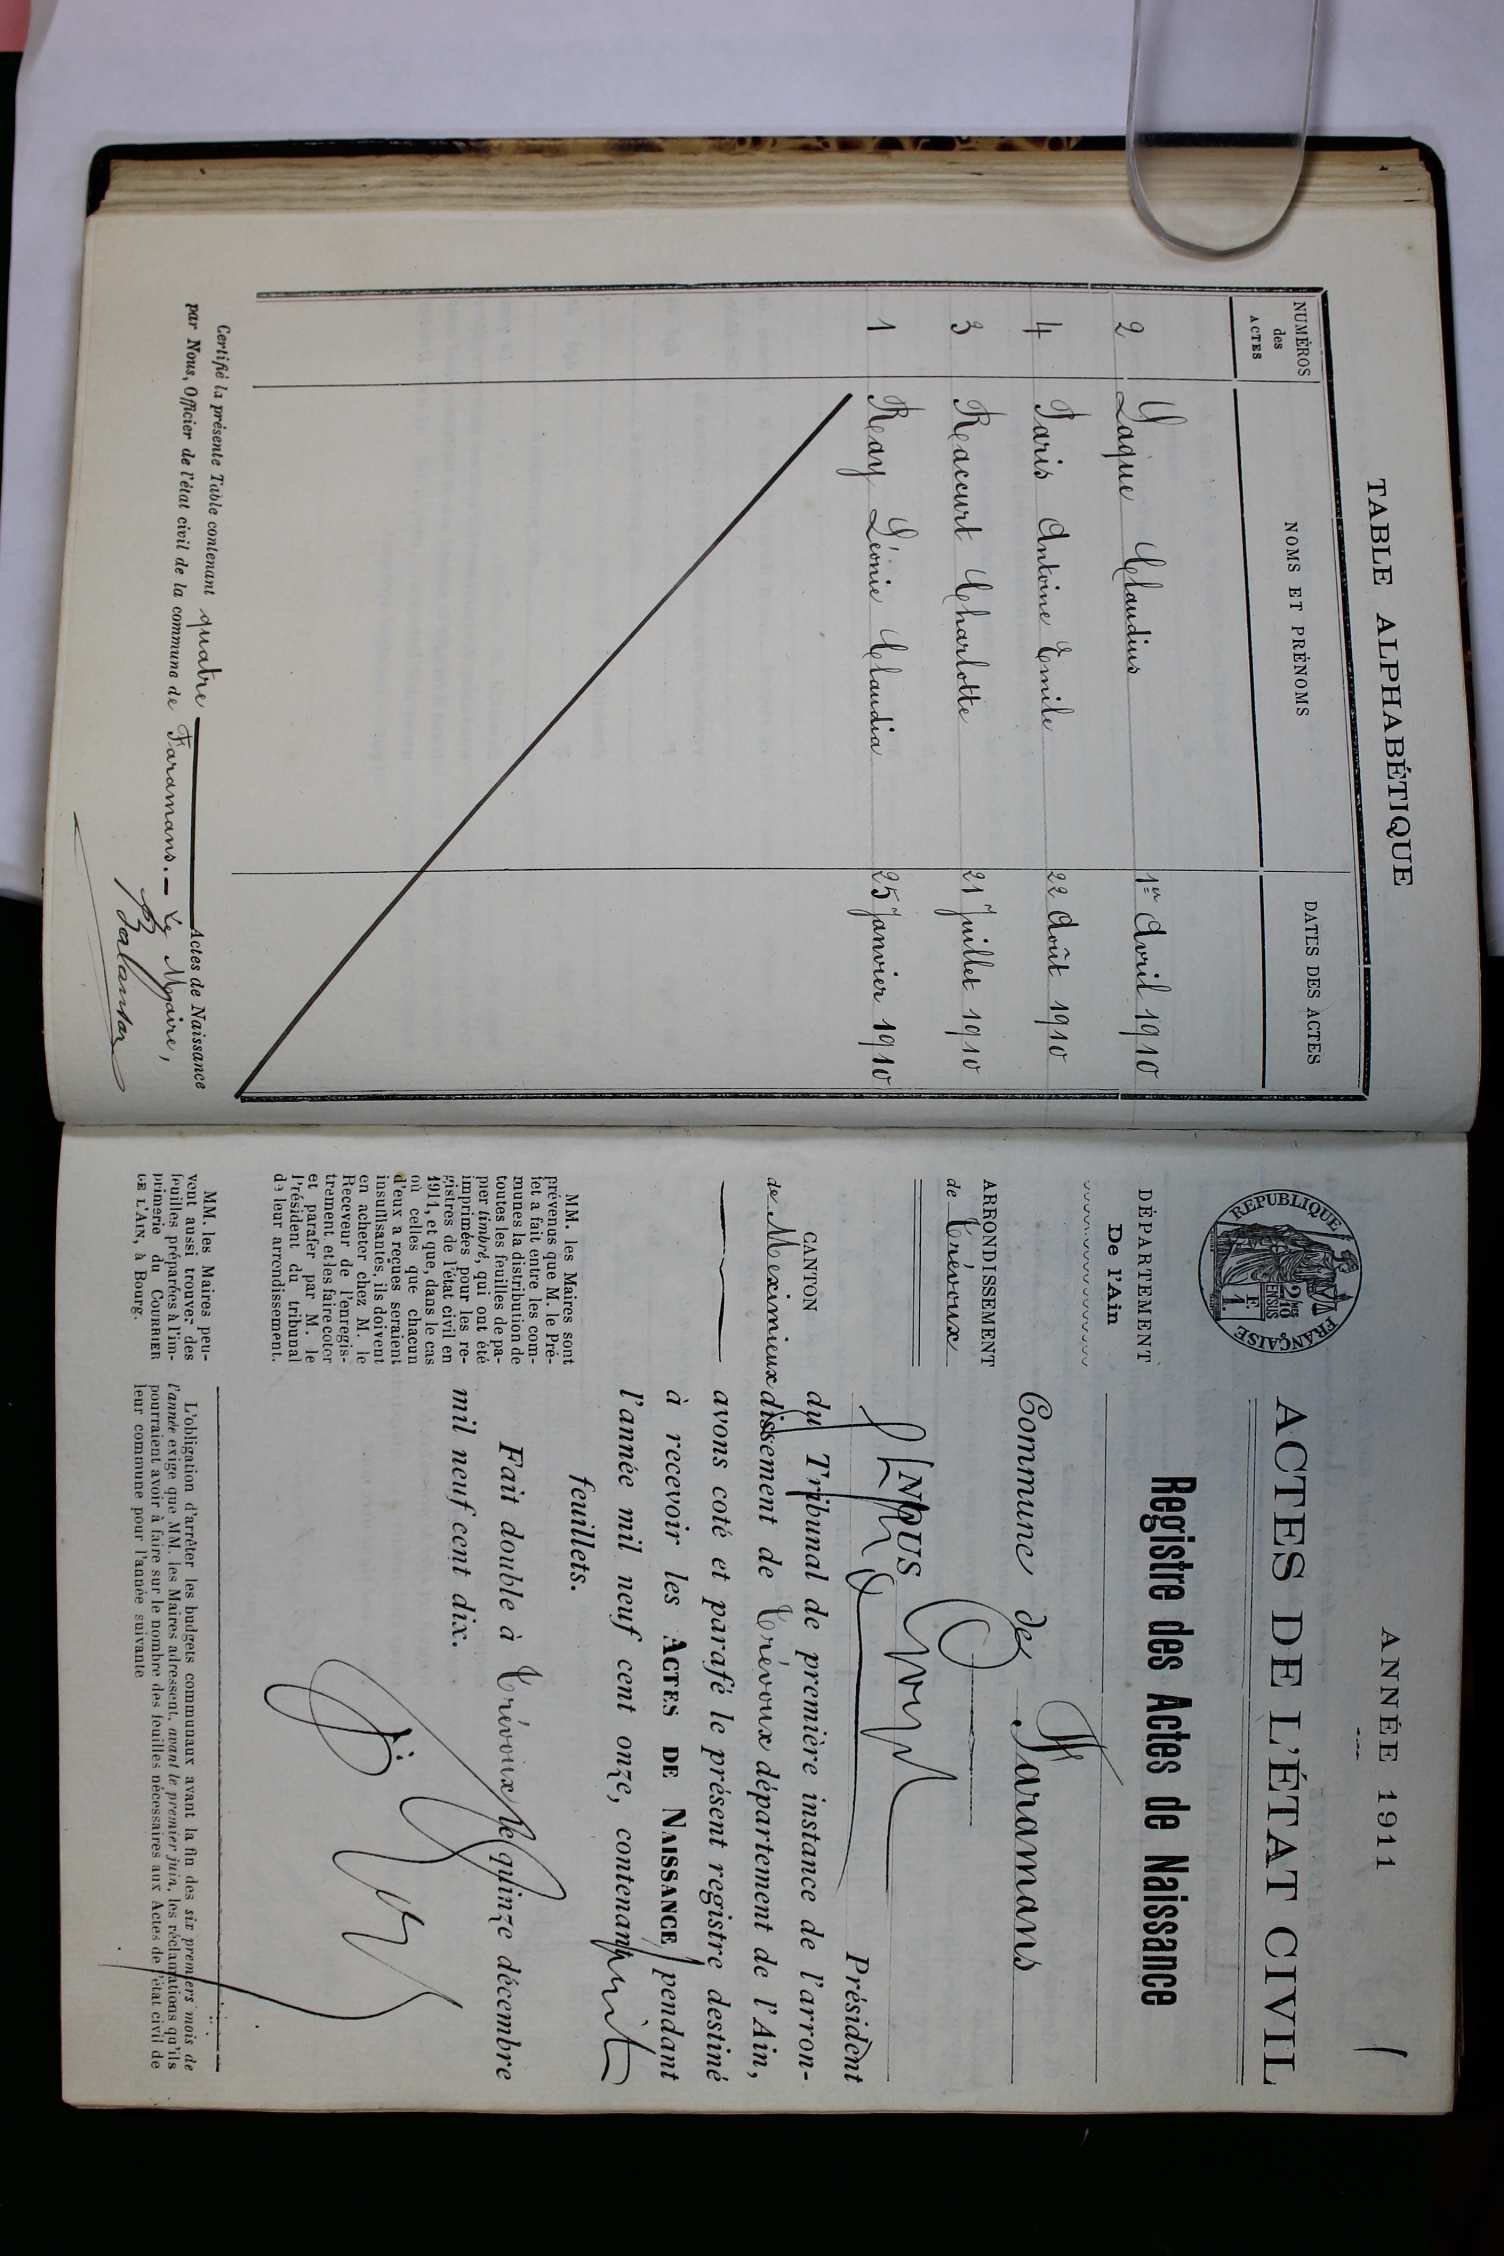 TABLE ALPHABÉTIQUE
NUMÉROS
des
ACTES
NOMS ET PRÉNOMS
DATES DES ACTES
2 Laque Claudius 1er Avril 1910
4 Paris Antoine Emile 22 Août 1910
3 Reaccurt Charlotte 21 Juillet 1910
1 Reay Léonie Claudia 25 Janvier 1910
Certifié la présente Table contenant quatre Actes de Naissance
par Nous, Officier de l'état civil de la commune de Faramans. Le Maire,
ANNÉE 1911
1
REPUBLIQUE FRANÇAISE
ACTES DE L'ÉTAT CIVIL
DÉPARTEMENT
De l'Ain
Registre des Actes de Naissance
ARRONDISSEMENT
de Trévoux
Commune de Faramans
CANTON
de Meximieux
NOUS
Président
du Tribunal de première instance de l'arron-
dissement de Trévoux département de l'Ain,
avons coté et parafé le présent registre destiné
à recevoir les ACTES DE NAISSANCE pendant
l'année mil neuf cent onze, contenant huit
feuillets.
Fait double à Trévoux le quinze décembre
mil neuf cent dix.
MM. les Maires sont
prévenus que M. le Pré-
fet a fait entre les com-
munes la distribution de
toutes les feuilles de pa-
pier timbré, qui ont été
imprimées pour les re-
gistres de l'état civil en
1911, et que, dans le cas
où celles que chacun
d'eux a reçues seraient
insuffisantes, ils doivent
en acheter chez M. le
Receveur de l'enregis-
trement et les faire coter
et parafer par M. le
Président du tribunal
de leur arrondissement.
MM. les Maires peu-
vent aussi trouver des
feuilles préparées à l'im-
primerie du COURRIER
DE L'AIN, à Bourg.
L'obligation d'arrêter les budgets communaux avant la fin des six premiers mois de
l'année exige que MM. les Maires adressent, avant le premier juin, les réclamations qu'ils
pourraient avoir à faire sur le nombre des feuilles nécessaires aux Actes de l'état civil de
leur commune pour l'année suivante